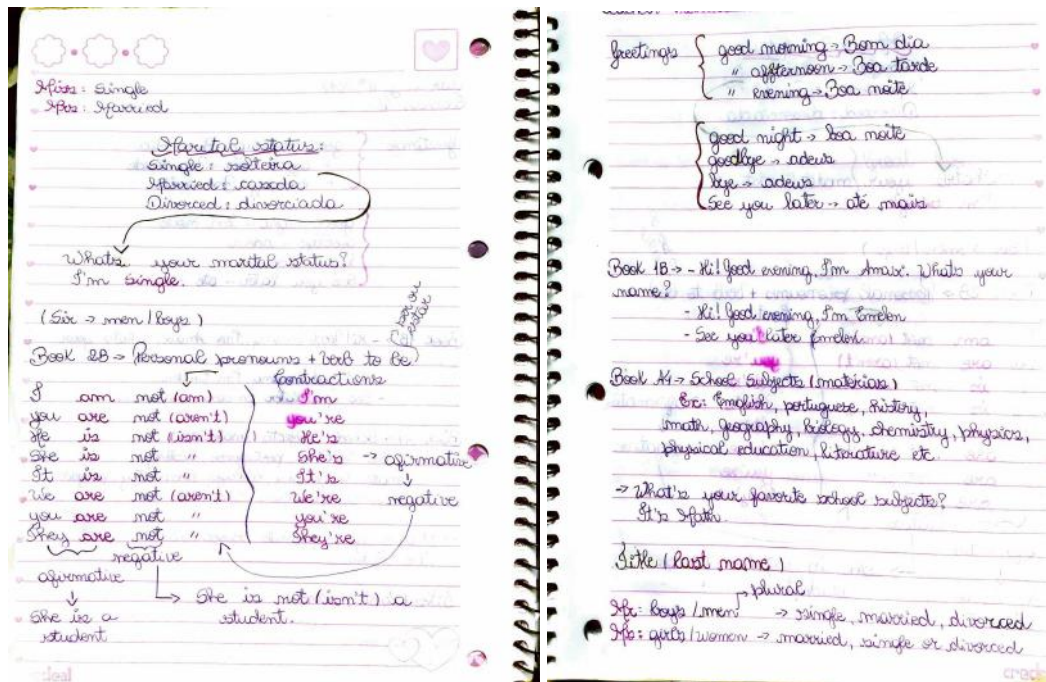 Miss: Single
Mrs: Married
Marital status:
Single: solteira
Married: casada
Divorced: divorciada
Whats your marital status?
I'm single.
(Sir → men / boys)
ser ou estar
Book 2B → Personal pronouns + verb to be
Contractions
I am not (am) I'm
you are not (aren't) you're
He is not (isn't) He's
She is not " She's → afirmative
It is not " It's ↓
We are not (aren't) We're negative
you are not " you're
They are not " They're
negative
afirmative
↳ She is not (isn't) a student.
↓
She is a student
deal
Greetings { good morning → Bom dia
" affternoon → Boa tarde
" evening → Boa noite
good night → boa noite
goodbye → adeus
bye → adeus
See you later → até mais
Book 1B → - Hi! Good evening, I'm Amax. Whats your
name?
- Hi! Good evening, I'm Emelen
- See you later Emelen.
Book A4 → School Subjects (matérias)
Ex: English, portuguese, history,
math, geography, biology, chemistry, physics,
physical education, literature etc.
→ What's your favorite school subjects?
It's Math.
Title (last name)
plural
Mr: boys / men → single, married, divorced
Ms: girls / women → married, single or divorced